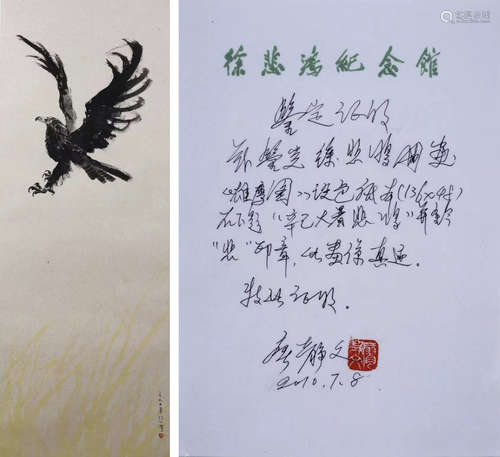 徐悲鸿紀念館
鑒定证明
兹鑒定徐悲鸿国画
《雄鹰图》设色纸本(136x45)
右下题“辛巳大暑悲鸿”并钤
“悲”印章,此画系真迹.
特此证明.
廖静文
2010.7.8